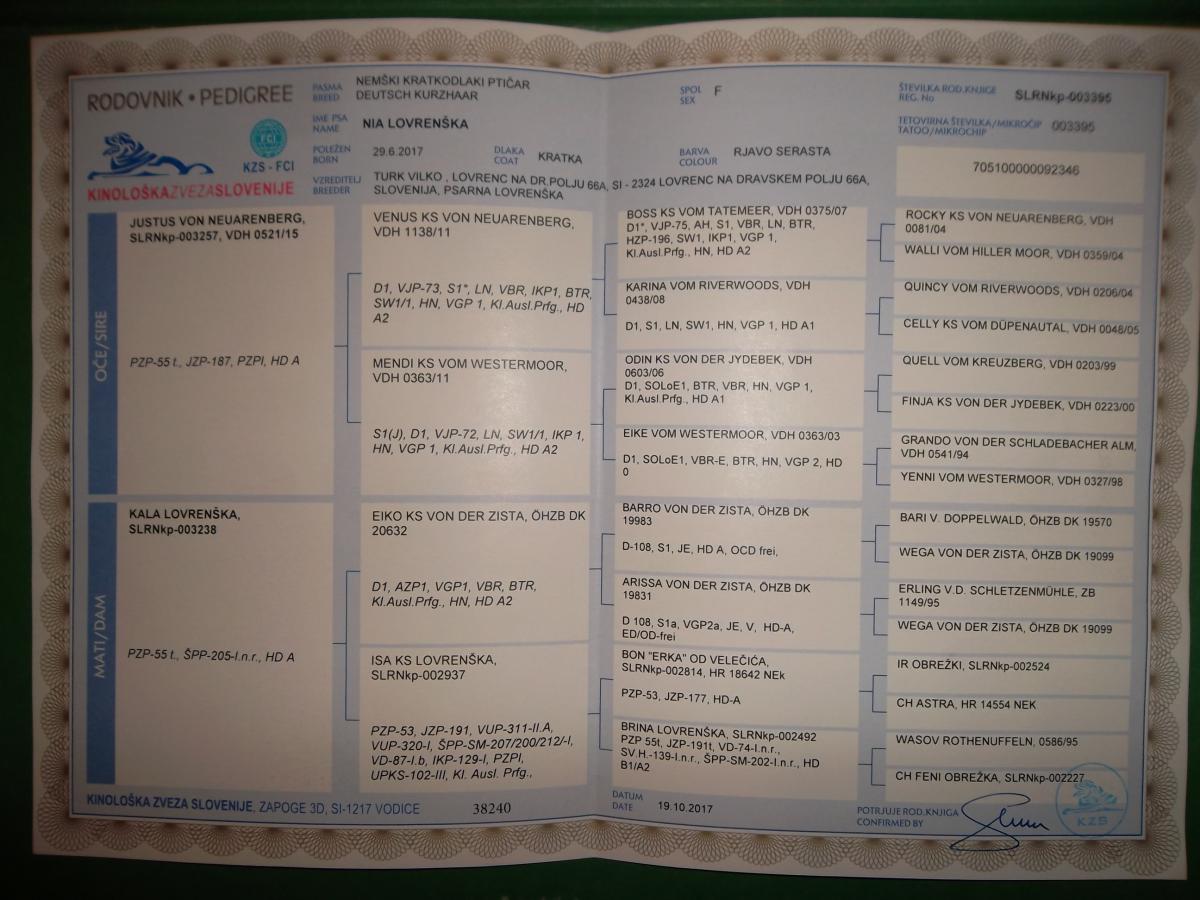 RODOVNIK • PEDIGREE
FCI
KZS - FCI
KINOLOŠKAZVEZASLOVENIJE
PASMA
BREED
NEMŠKI KRATKODLAKI PTIČAR
DEUTSCH KURZHAAR
IME PSA
NAME
NIA LOVRENŠKA
POLEŽEN
BORN
29.6.2017
DLAKA
COAT
KRATKA
VZREDITELJ
BREEDER
TURK VILKO , LOVRENC NA DR.POLJU 66A, SI - 2324 LOVRENC NA DRAVSKEM POLJU 66A,
SLOVENIJA, PSARNA LOVRENŠKA
SPOL
SEX
F
BARVA
COLOUR
RJAVO SERASTA
ŠTEVILKA ROD.KNJIGE
REG. No
SLRNkp-003395
TETOVIRNA ŠTEVILKA/MIKROČIP
TATOO/MICROCHIP
003395
705100000092346
OČE/SIRE
JUSTUS VON NEUARENBERG,
SLRNkp-003257, VDH 0521/15
PZP-55 t., JZP-187, PZPI, HD A
VENUS KS VON NEUARENBERG,
VDH 1138/11
D1, VJP-73, S1*, LN, VBR, IKP1, BTR,
SW1/1, HN, VGP 1, Kl.Ausl.Prfg., HD
A2
MENDI KS VOM WESTERMOOR,
VDH 0363/11
S1(J), D1, VJP-72, LN, SW1/1, IKP 1,
HN, VGP 1, Kl.Ausl.Prfg., HD A2
BOSS KS VOM TATEMEER, VDH 0375/07
D1*, VJP-75, AH, S1, VBR, LN, BTR,
HZP-196, SW1, IKP1, VGP 1,
Kl.Ausl.Prfg., HN, HD A2
KARINA VOM RIVERWOODS, VDH
0438/08
D1, S1, LN, SW1, HN, VGP 1, HD A1
ODIN KS VON DER JYDEBEK, VDH
0603/06
D1, SOLoE1, BTR, VBR, HN, VGP 1,
Kl.Ausl.Prfg., HD A1
EIKE VOM WESTERMOOR, VDH 0363/03
D1, SOLoE1, VBR-E, BTR, HN, VGP 2, HD
0
ROCKY KS VON NEUARENBERG, VDH
0081/04
WALLI VOM HILLER MOOR, VDH 0359/04
QUINCY VOM RIVERWOODS, VDH 0206/04
CELLY KS VOM DÜPENAUTAL, VDH 0048/05
QUELL VOM KREUZBERG, VDH 0203/99
FINJA KS VON DER JYDEBEK, VDH 0223/00
GRANDO VON DER SCHLADEBACHER ALM,
VDH 0541/94
YENNI VOM WESTERMOOR, VDH 0327/98
MATI/DAM
KALA LOVRENŠKA,
SLRNkp-003238
PZP-55 t., ŠPP-205-I.n.r., HD A
EIKO KS VON DER ZISTA, ÖHZB DK
20632
D1, AZP1, VGP1, VBR, BTR,
Kl.Ausl.Prfg., HN, HD A2
ISA KS LOVRENŠKA,
SLRNkp-002937
PZP-53, JZP-191, VUP-311-II.A,
VUP-320-I, ŠPP-SM-207/200/212/-I,
VD-87-I.b, IKP-129-I, PZPI,
UPKS-102-III, Kl. Ausl. Prfg.,
BARRO VON DER ZISTA, ÖHZB DK
19983
D-108, S1, JE, HD A, OCD frei,
ARISSA VON DER ZISTA, ÖHZB DK
19831
D 108, S1a, VGP2a, JE, V, HD-A,
ED/OD-frei
BON "ERKA" OD VELEČIĆA,
SLRNkp-002814, HR 18642 NEk
PZP-53, JZP-177, HD-A
BRINA LOVRENŠKA, SLRNkp-002492
PZP 55t, JZP-191t, VD-74-I.n.r.,
SV.H.-139-I.n.r., ŠPP-SM-202-I.n.r., HD
B1/A2
BARI V. DOPPELWALD, ÖHZB DK 19570
WEGA VON DER ZISTA, ÖHZB DK 19099
ERLING V.D. SCHLETZENMÜHLE, ZB
1149/95
WEGA VON DER ZISTA, ÖHZB DK 19099
IR OBREŽKI, SLRNkp-002524
CH ASTRA, HR 14554 NEK
WASOV ROTHENUFFELN, 0586/95
CH FENI OBREŽKA, SLRNkp-002227
KINOLOŠKA ZVEZA SLOVENIJE, ZAPOGE 3D, SI-1217 VODICE
38240
DATUM
DATE
19.10.2017
POTRJUJE ROD.KNJIGA
CONFIRMED BY
KZS